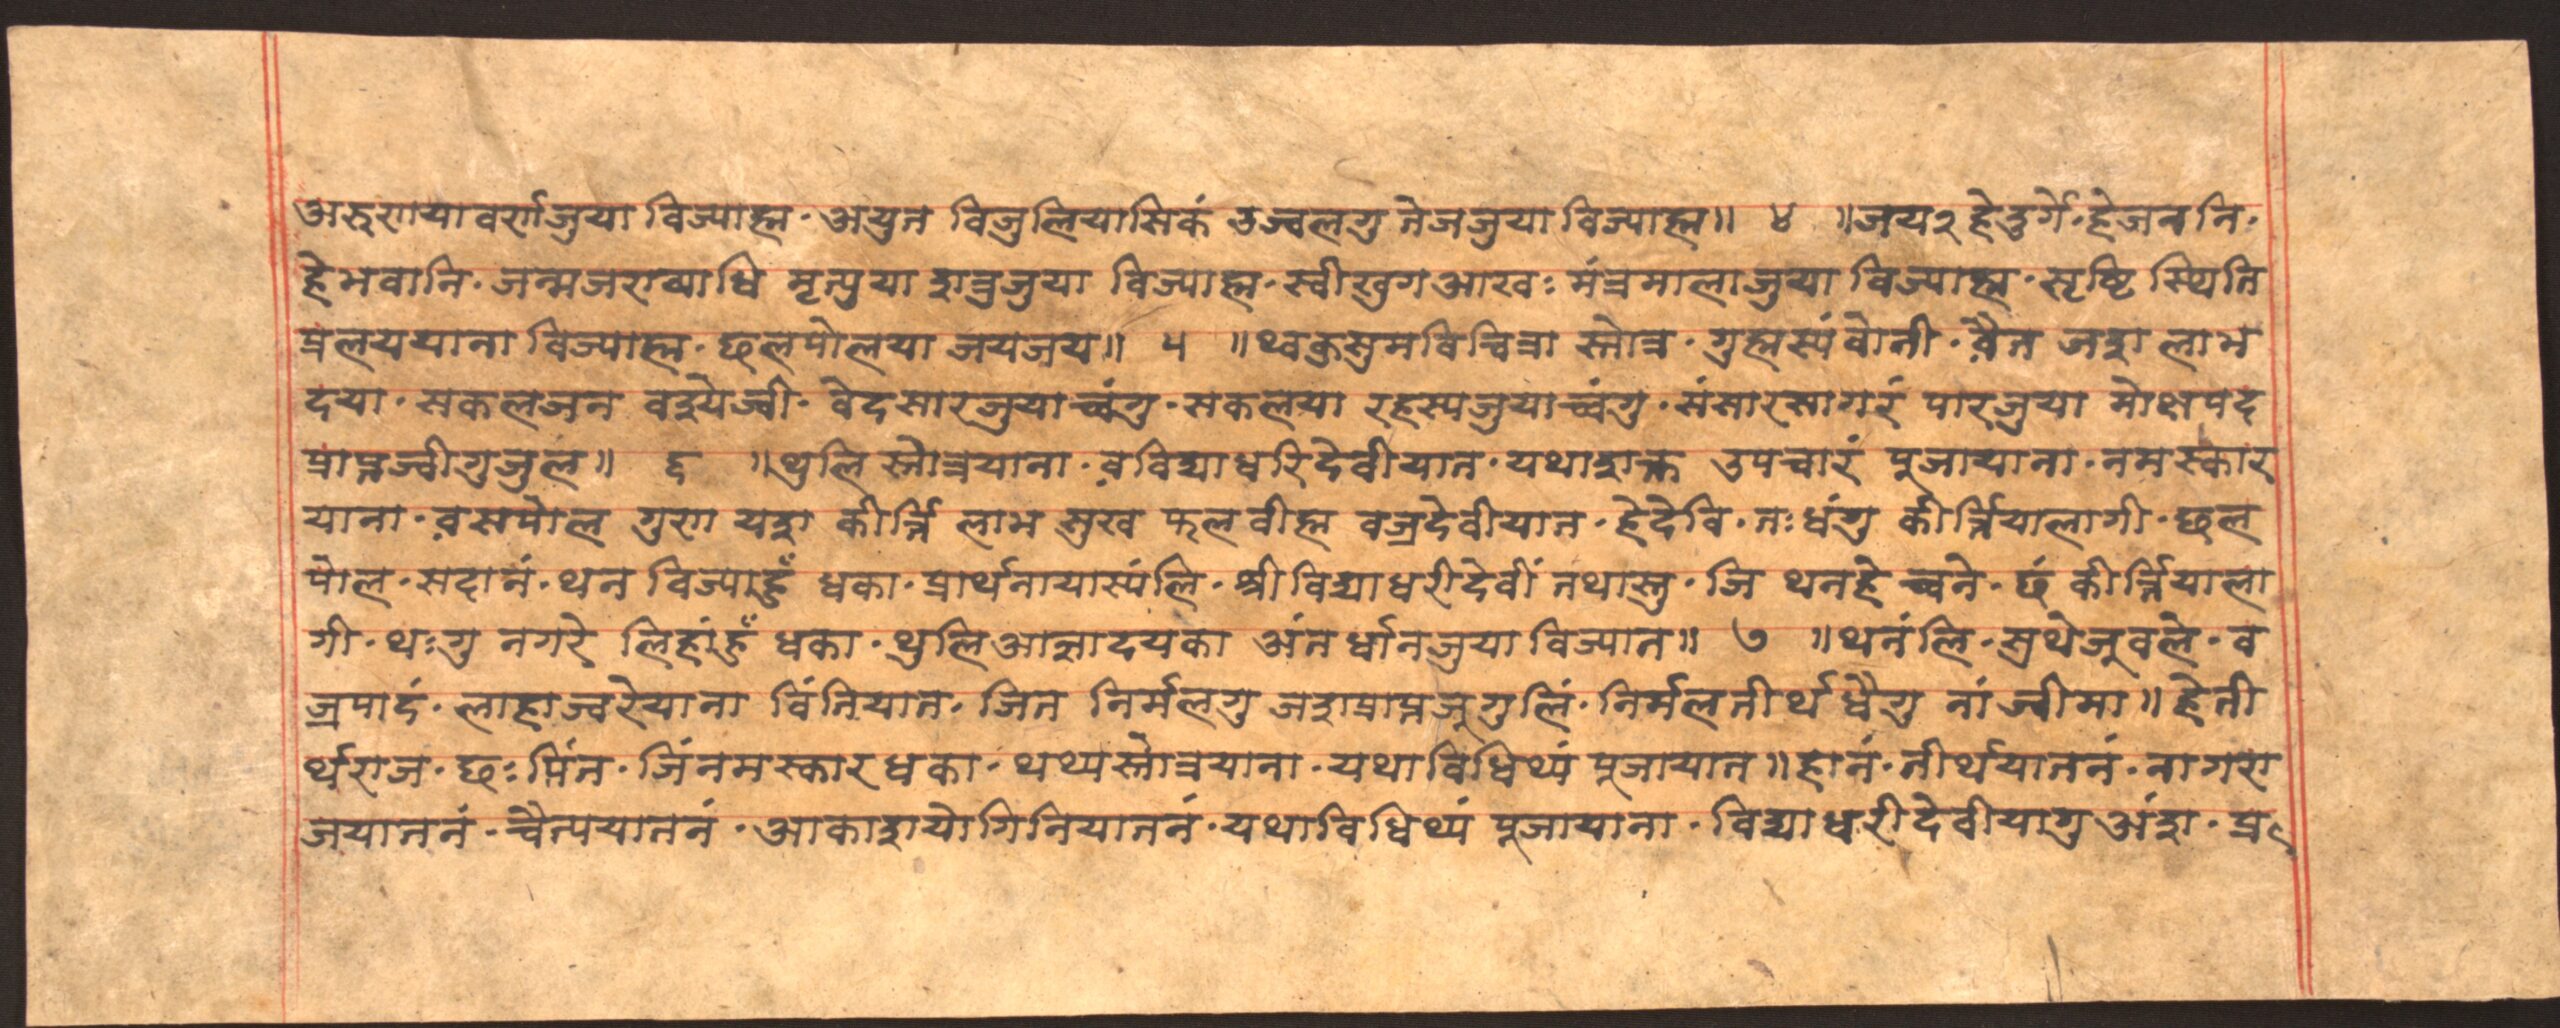 अरुणया वर्णजुया विज्याह्म · अयुत विजुलियासिकं उज्वलगु तेजजुया विज्याह्म॥ ४ ॥जय२ हेदुर्गे · हेजननि ·
हेभवानि · जन्मजराव्याधि मृत्युया शत्रुजुया विज्याह्म · स्वीखुगआखः मंत्रमालाजुया विज्याह्म · सृष्टि स्थिति
प्रलययाना विज्याह्म · छलपोलया जयजय॥ ५ ॥थ्वकुसुमविचित्रा स्तोत्र · गुह्मस्यं वोनी · वैत जश लाभ
दया · सकलजन वश्येज्वी · वेदसारजुयाच्वंगु · सकलया रहस्यजुयाच्वंगु · संसारसागरं पारजुया मोक्षपद
प्राप्तज्वीगुजुल॥ ६ ॥थुलि स्तोत्रयाना · वविद्याधरिदेवीयात · यथाशक्त उपचारं पुजायाना · नमस्कार
याना · वसपोल गुण यश कीर्त्ति लाभ सुख फलवीह्म वज्रदेवीयात · हेदेवि · तःधंगु कीर्त्तियालागी · छल
पोल · सदानं · थन विज्याहुँ धका · प्रार्थनायास्यंलि · श्रीविद्याधरीदेवीं तथास्तु · जि थनहे च्वने · छं कीर्त्तियाला
गी · थःगु नगरे लिहांहुँ धका · थुलिआज्ञादयका अंतर्धानजुया विज्यात॥ ७ ॥थनंलि · स्रथेजुवले · व
ज्रपादं · लाहाज्वरेयाना विंतियात · जित निर्मलगु जशप्राप्तजूगुलिं · निर्मलतीर्थ धैगु नां ज्वीमा॥हेती
र्थराज · छःपिंत · जिंनमस्कारधका · थथ्यस्तोत्रयाना · यथाविधिथ्यं पूजायात॥हानं · तीर्थयातनं · नागरा
जयातनं · चैत्ययातनं · आकाशयोगिनियातनं · यथाविधिथ्यं पूजायाना · विद्याधरीदेवीयागु अंश · प्र